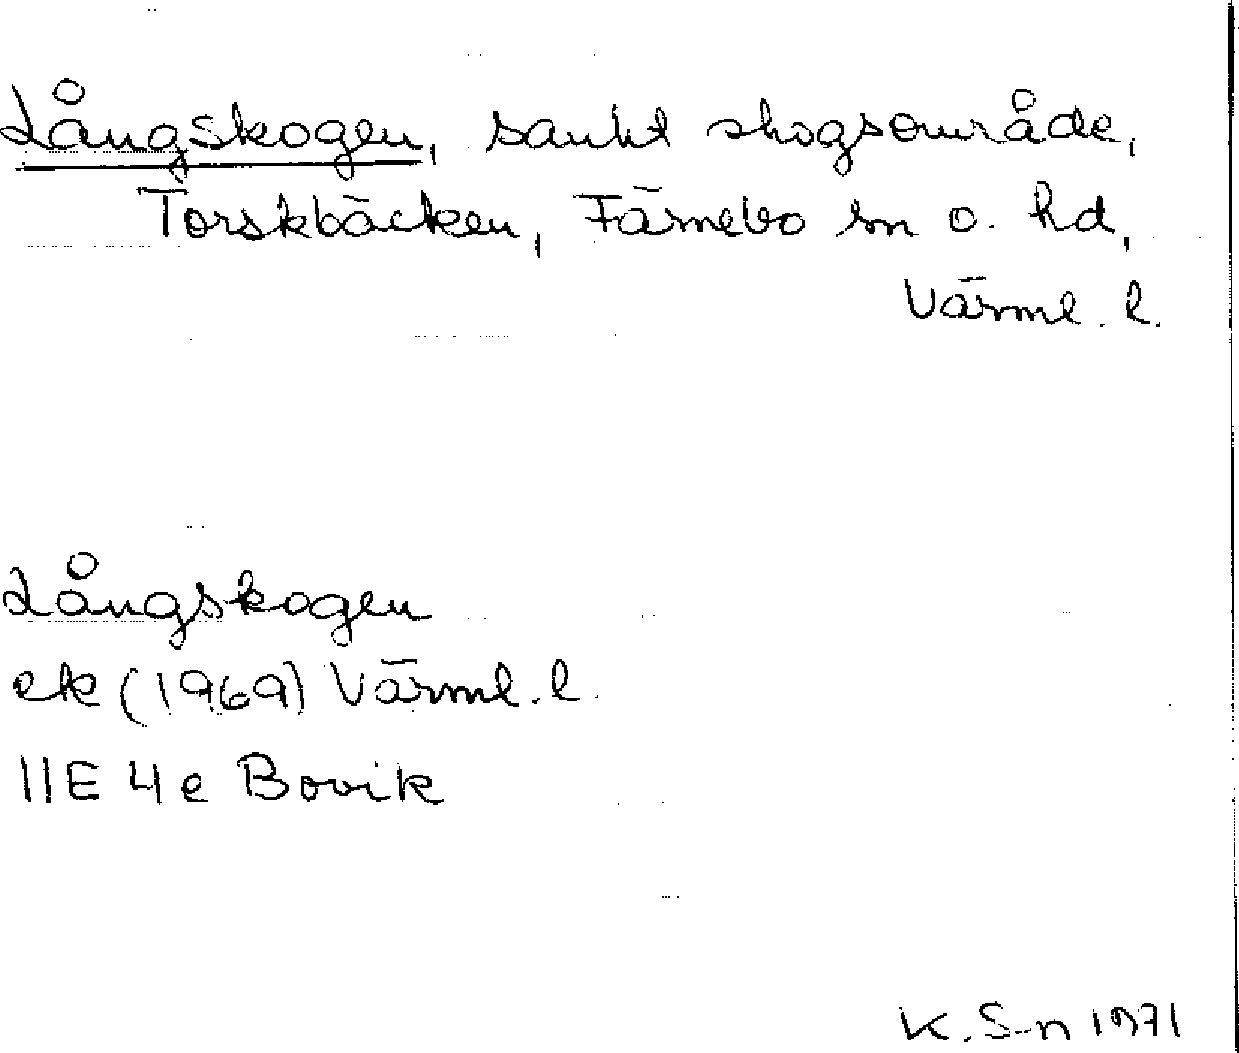 Långskogen, sankt skogsområde,
Torskbäcken, Färnebo sn o. hd,
Värml. l.
Långskogen
ek (1969) Värml. l.
11E 4e Bovik
K. S-n 1971